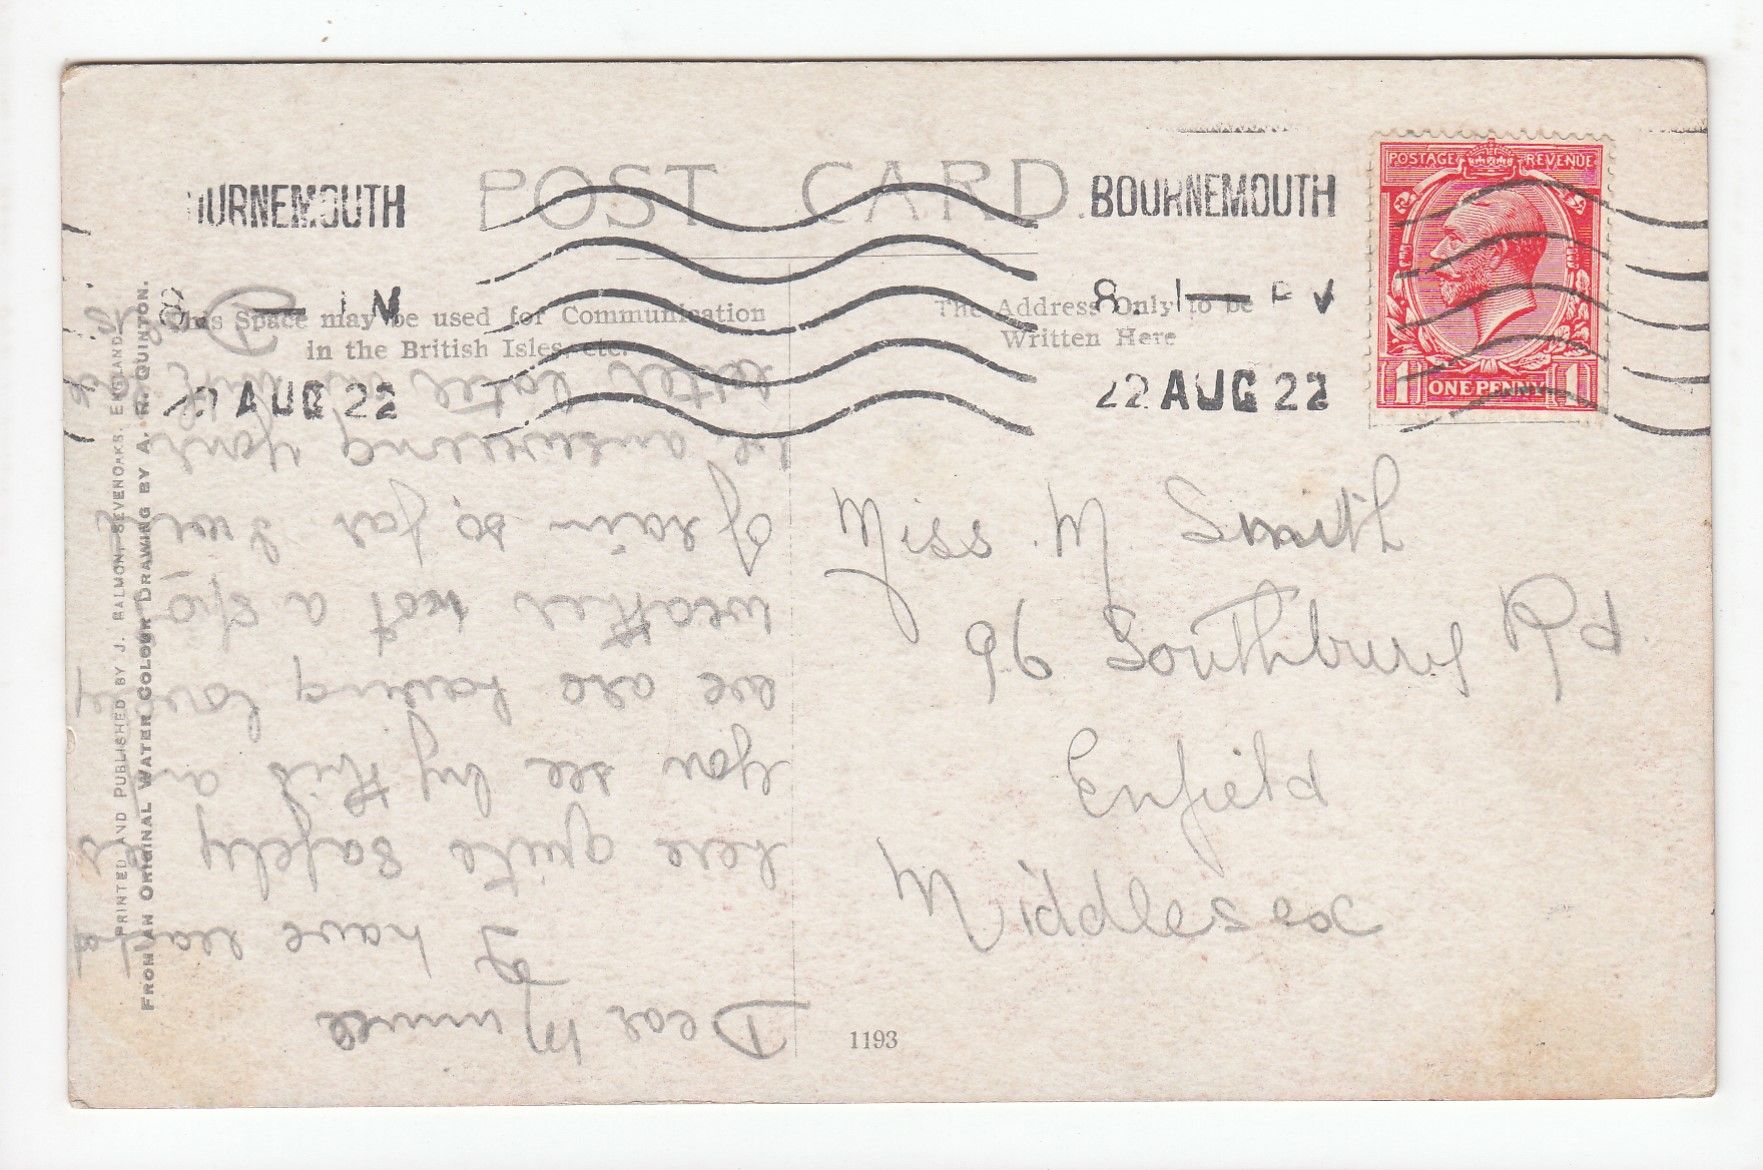 POST CARD.
BOURNEMOUTH
8. 1 — PM
22 AUG 22
POSTAGE REVENUE
1 ONE PENNY 1
This Space may be used for Communication
in the British Isles, etc.
The Address Only to be
Written Here
Miss. M. Smith
96 Southbury Rd.
Enfield
Middlesex
1193
Dear Minnie
I have learnd
here quite safely as
you see by this and
we are having lovely
weather not a spot
of rain so far I will
be answering your
letter later
PRINTED AND PUBLISHED BY J. SALMON, SEVENOAKS, ENGLAND.
FROM AN ORIGINAL WATER COLOUR DRAWING BY A. R. QUINTON.